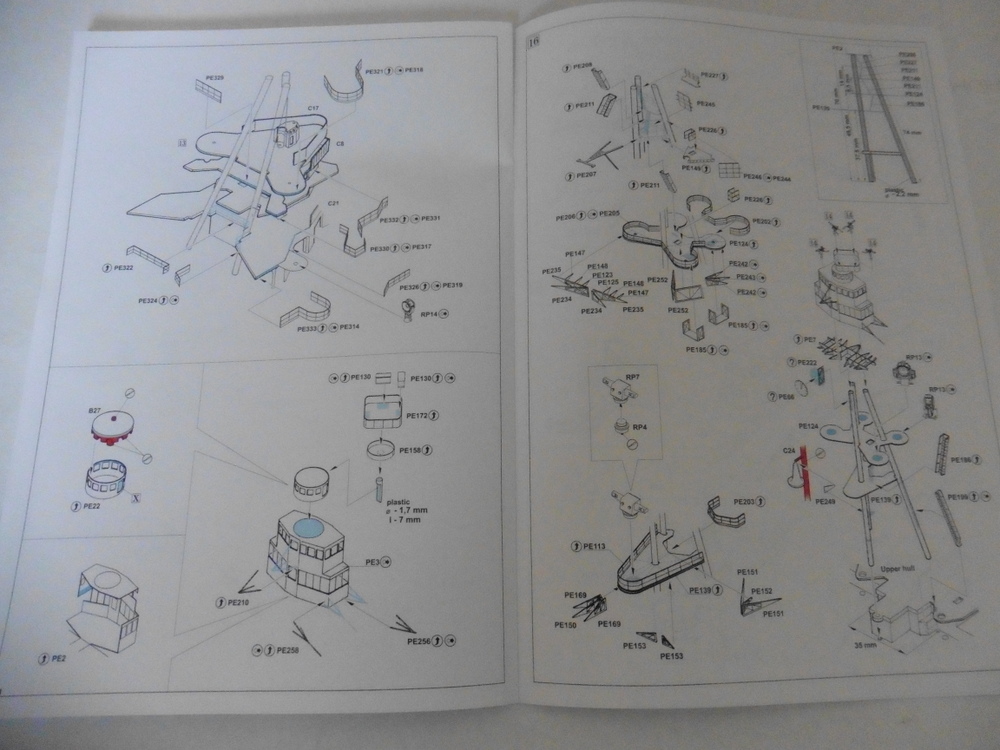 PE321 PE318
PE329
C17
C8
13
C21
PE332 PE331
PE330 PE317
PE322
PE324
PE326 PE319
RP14
PE333 PE314
B27
PE22
X
PE2
PE130 PE130
PE172
PE158
plastic
ø - 1,7 mm
l - 7 mm
PE3
PE210
PE258
PE256
16
PE211
PE207
PE227
PE245
PE149
PE246 PE244
PE211
PE206 PE205
PE202
PE134
PE147
PE148
PE235
PE123
PE125 PE148
PE147
PE234
PE234 PE235
PE252
PE252
PE242
PE243
PE242
PE185
PE185
RP7
RP4
PE203
PE113
PE139
PE169
PE150 PE169
PE153
PE153
PE151
PE152
PE151
14 mm
plastic
ø - 2,2 mm
PE7
PE222
PE86
RP13
RP13
PE124
C24
PE249
PE139
PE198
PE199
Upper hull
35 mm